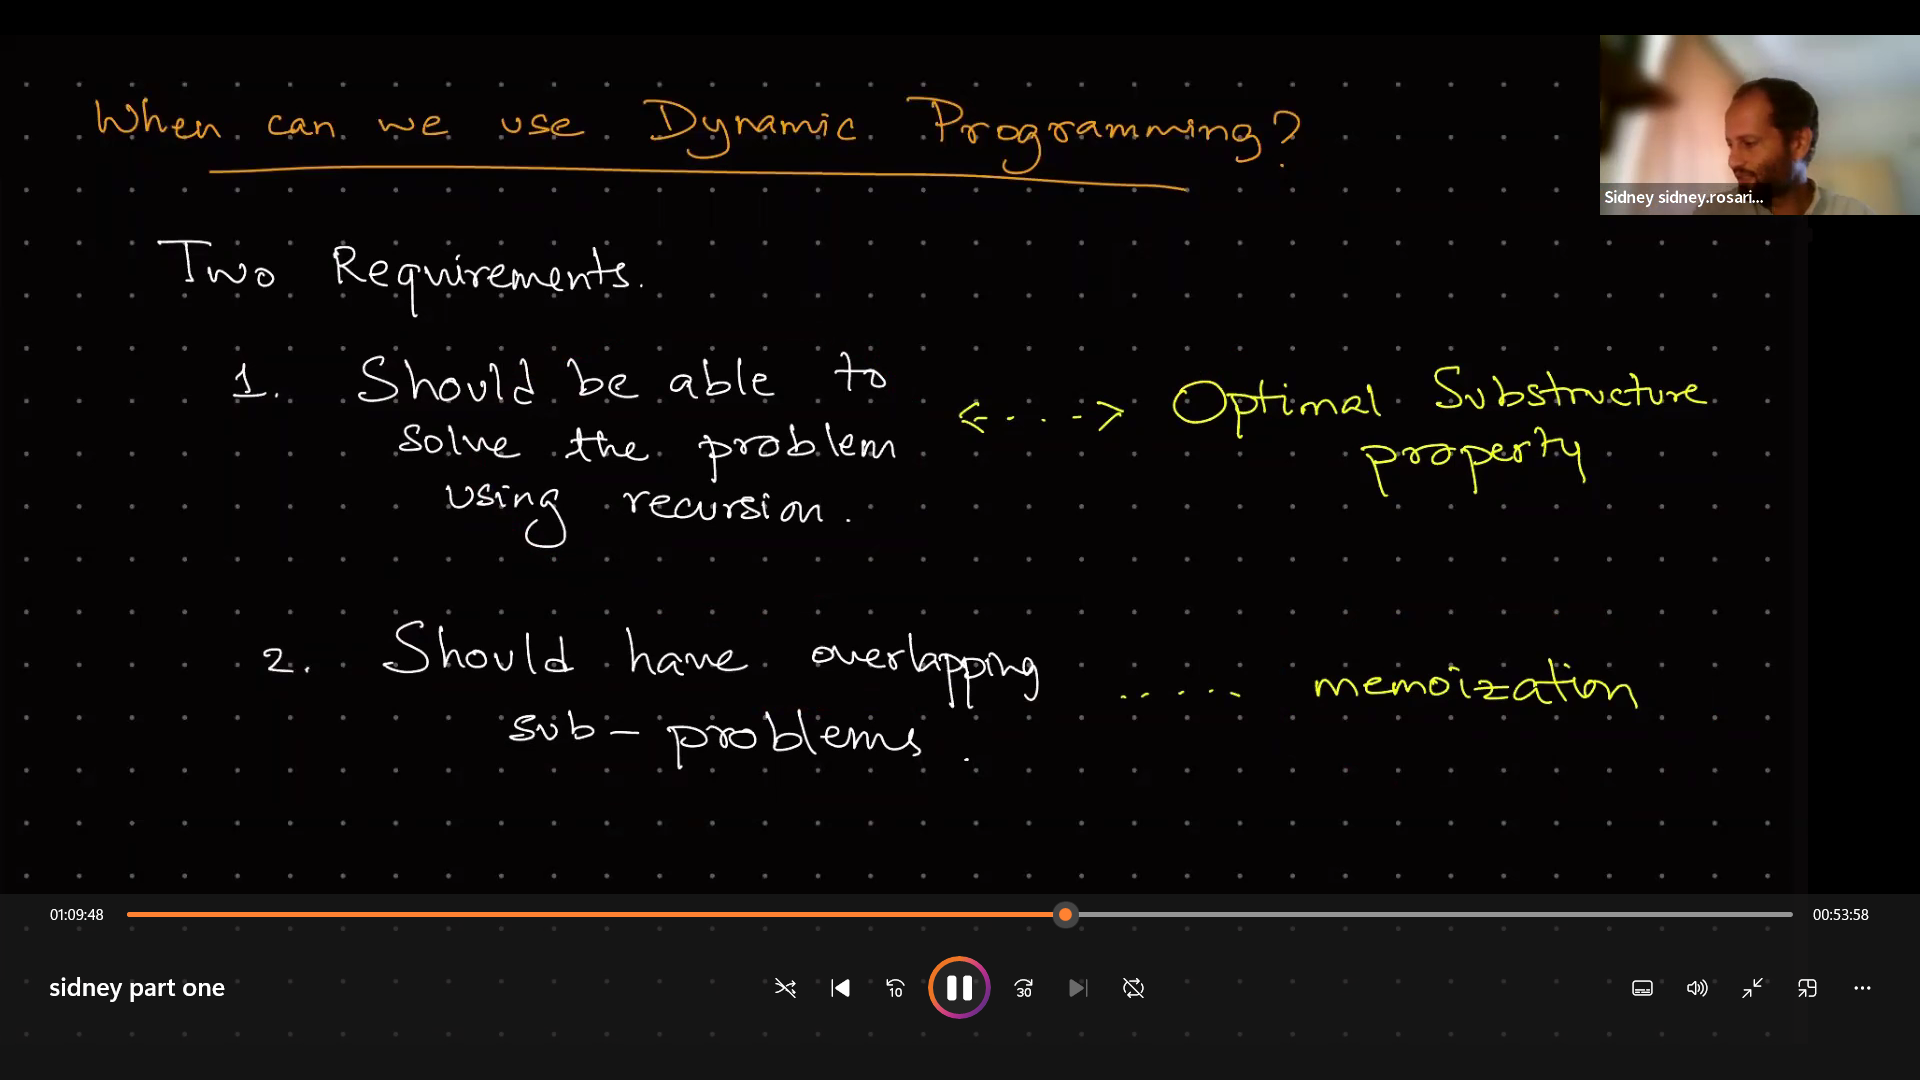 When can we use Dynamic Programming?
Sidney sidney.rosari...
Two Requirements.
1. Should be able to
solve the problem
using recursion.
<....> Optimal Substructure
property
2. Should have overlapping
sub-problems.
..... memoization
01:09:48
00:53:58
sidney part one
10
30